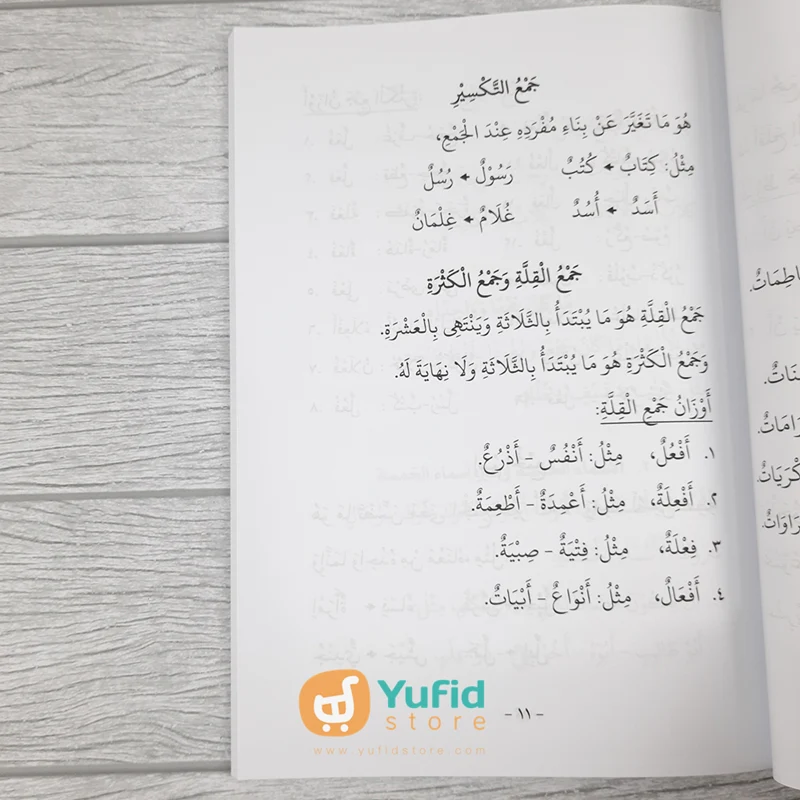 جَمْعُ التَّكْسِيْرِ
هُوَ مَا تَغَيَّرَ عَنْ بِنَاءِ مُفْرَدِهِ عِنْدَ الْجَمْعِ،
مِثْلُ: كِتَابٌ ← كُتُبٌ رَسُوْلٌ ← رُسُلٌ
أَسَدٌ ← أُسُدٌ غُلَامٌ ← غِلْمَانٌ
جَمْعُ الْقِلَّةِ وَجَمْعُ الْكَثْرَةِ
جَمْعُ الْقِلَّةِ هُوَ مَا يُبْتَدَأُ بِالثَّلَاثَةِ وَيَنْتَهِى بِالْعَشْرَةِ.
وَجَمْعُ الْكَثْرَةِ هُوَ مَا يُبْتَدَأُ بِالثَّلَاثَةِ وَلَا نِهَايَةَ لَهُ.
أَوْزَانُ جَمْعِ الْقِلَّةِ:
١. أَفْعُلٌ، مِثْلُ: أَنْفُسٌ - أَذْرُعٌ.
٢. أَفْعِلَةٌ، مِثْلُ: أَعْمِدَةٌ - أَطْعِمَةٌ.
٣. فِعْلَةٌ، مِثْلُ: فِتْيَةٌ - صِبْيَةٌ.
٤. أَفْعَالٌ، مِثْلُ: أَنْوَاعٌ - أَبْيَاتٌ.
- ١١ -
Yufid
store
www.yufidstore.com